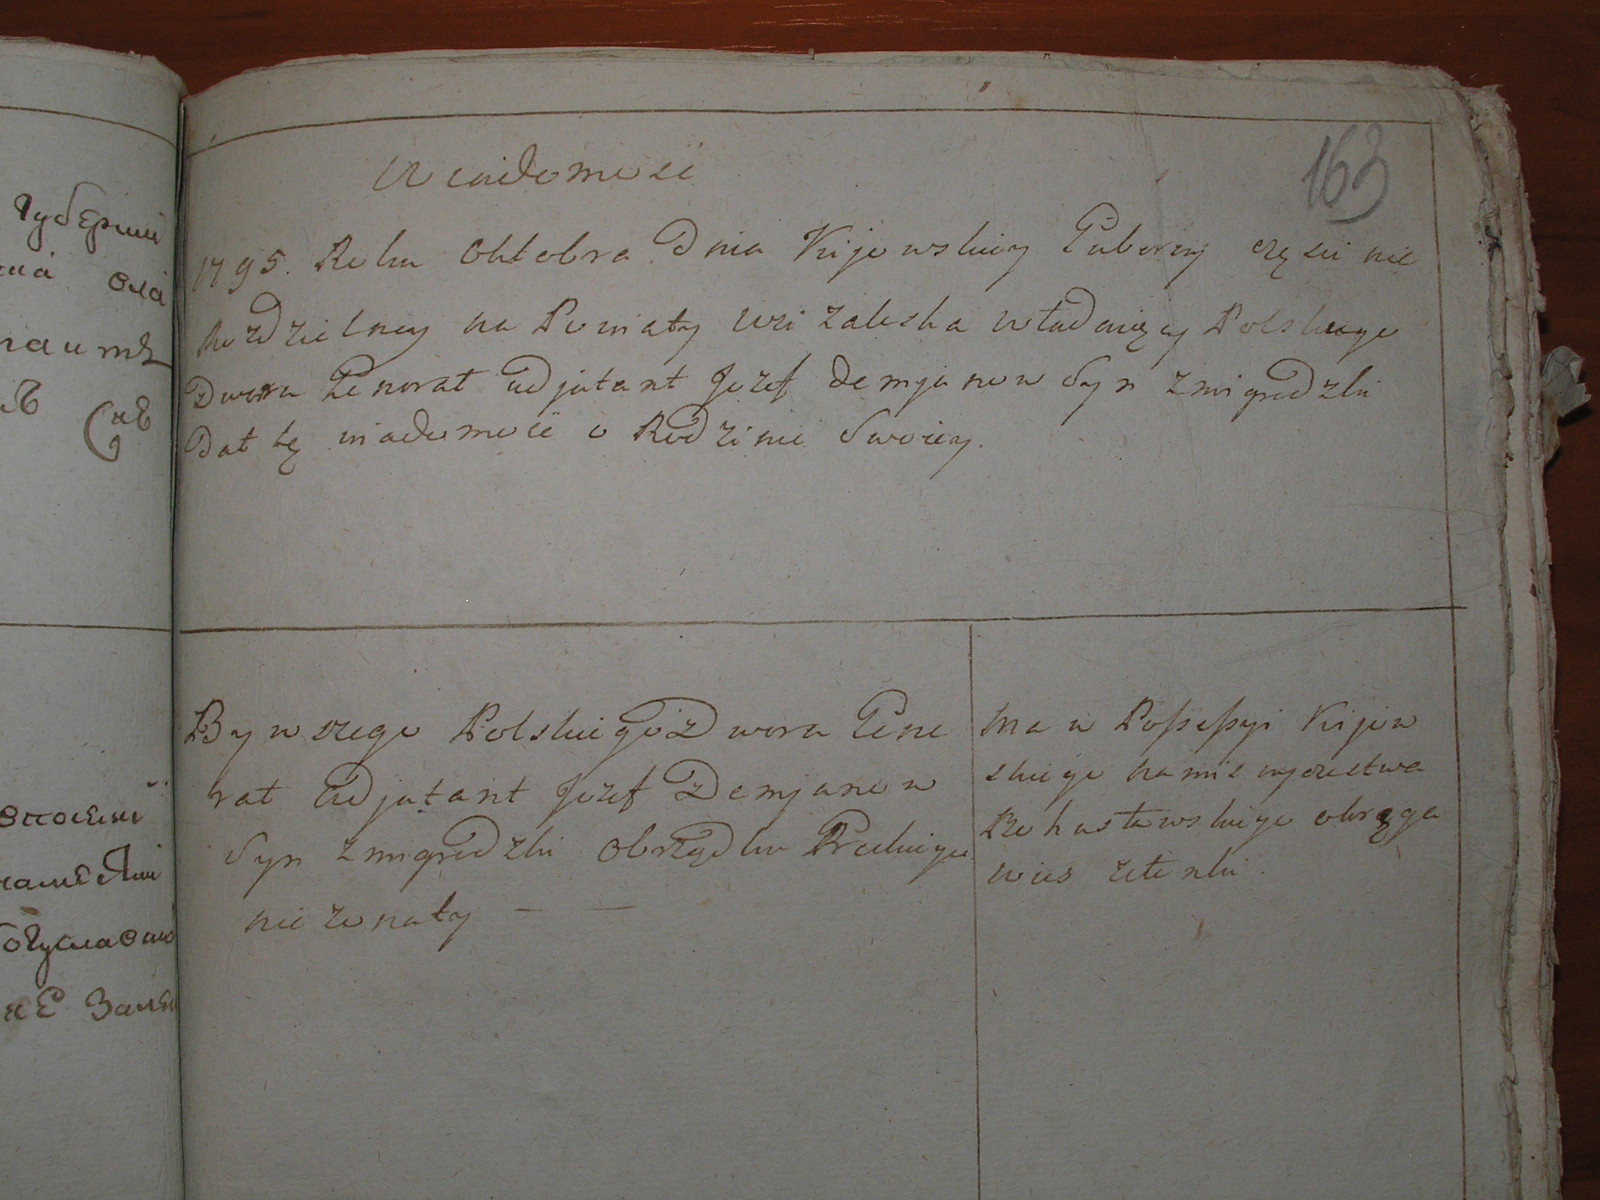 Губерниї
163
Wiadomość
1795. Roku Oktobra Dnia Kijowskiey Guberny częsci nie
Rozdzielney na Powiaty wsi zaleska władaiący Polskiego
Dworu Generał Adjutant Jozef demjanow Syn zmigrodzki
Dał tę wiadomość o Rodzinie Swoiey.
Bywszego Polskiego Dworu Gene
rał Adjutant Jozef Demjanow
Syn zmigrodzki Obrządku Greckiego
nie zonaty — —
Ma w Possessyi Kijow
skiego namiesnyczestwa
Bohusławskiego okręga
wies